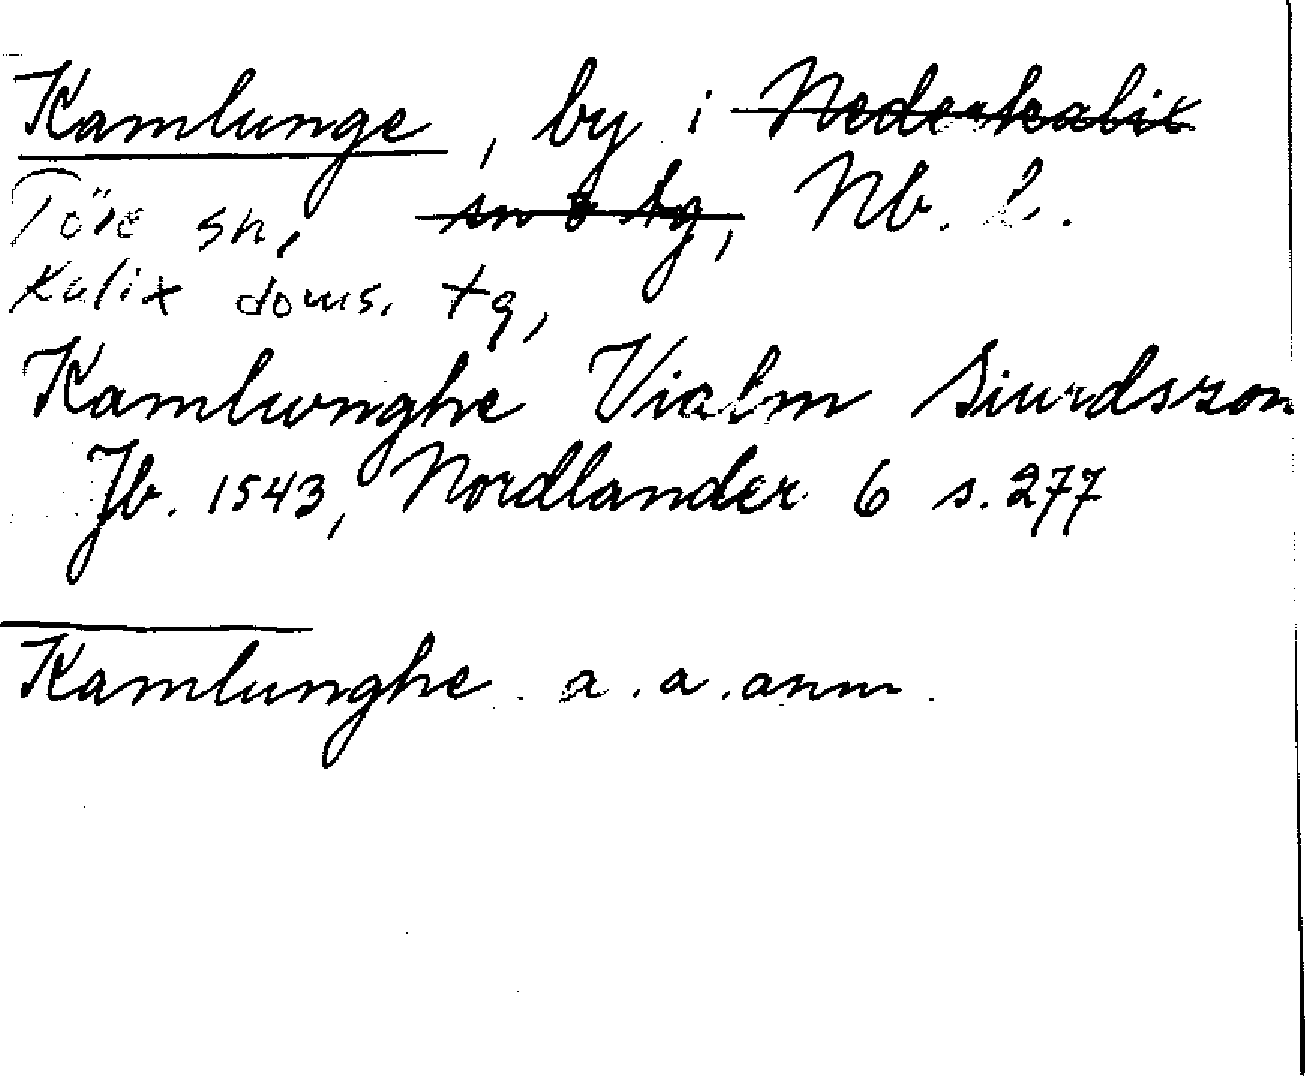 Kamlunge, by i Nederkalix
Töre sn, sn o tg, Nb. l.
Kalix doms. tg,
Kamlwnghe Vialm Siurdsson
Jb. 1543, Nordlander 6 s. 277
Kamlunghe a. a. anm.